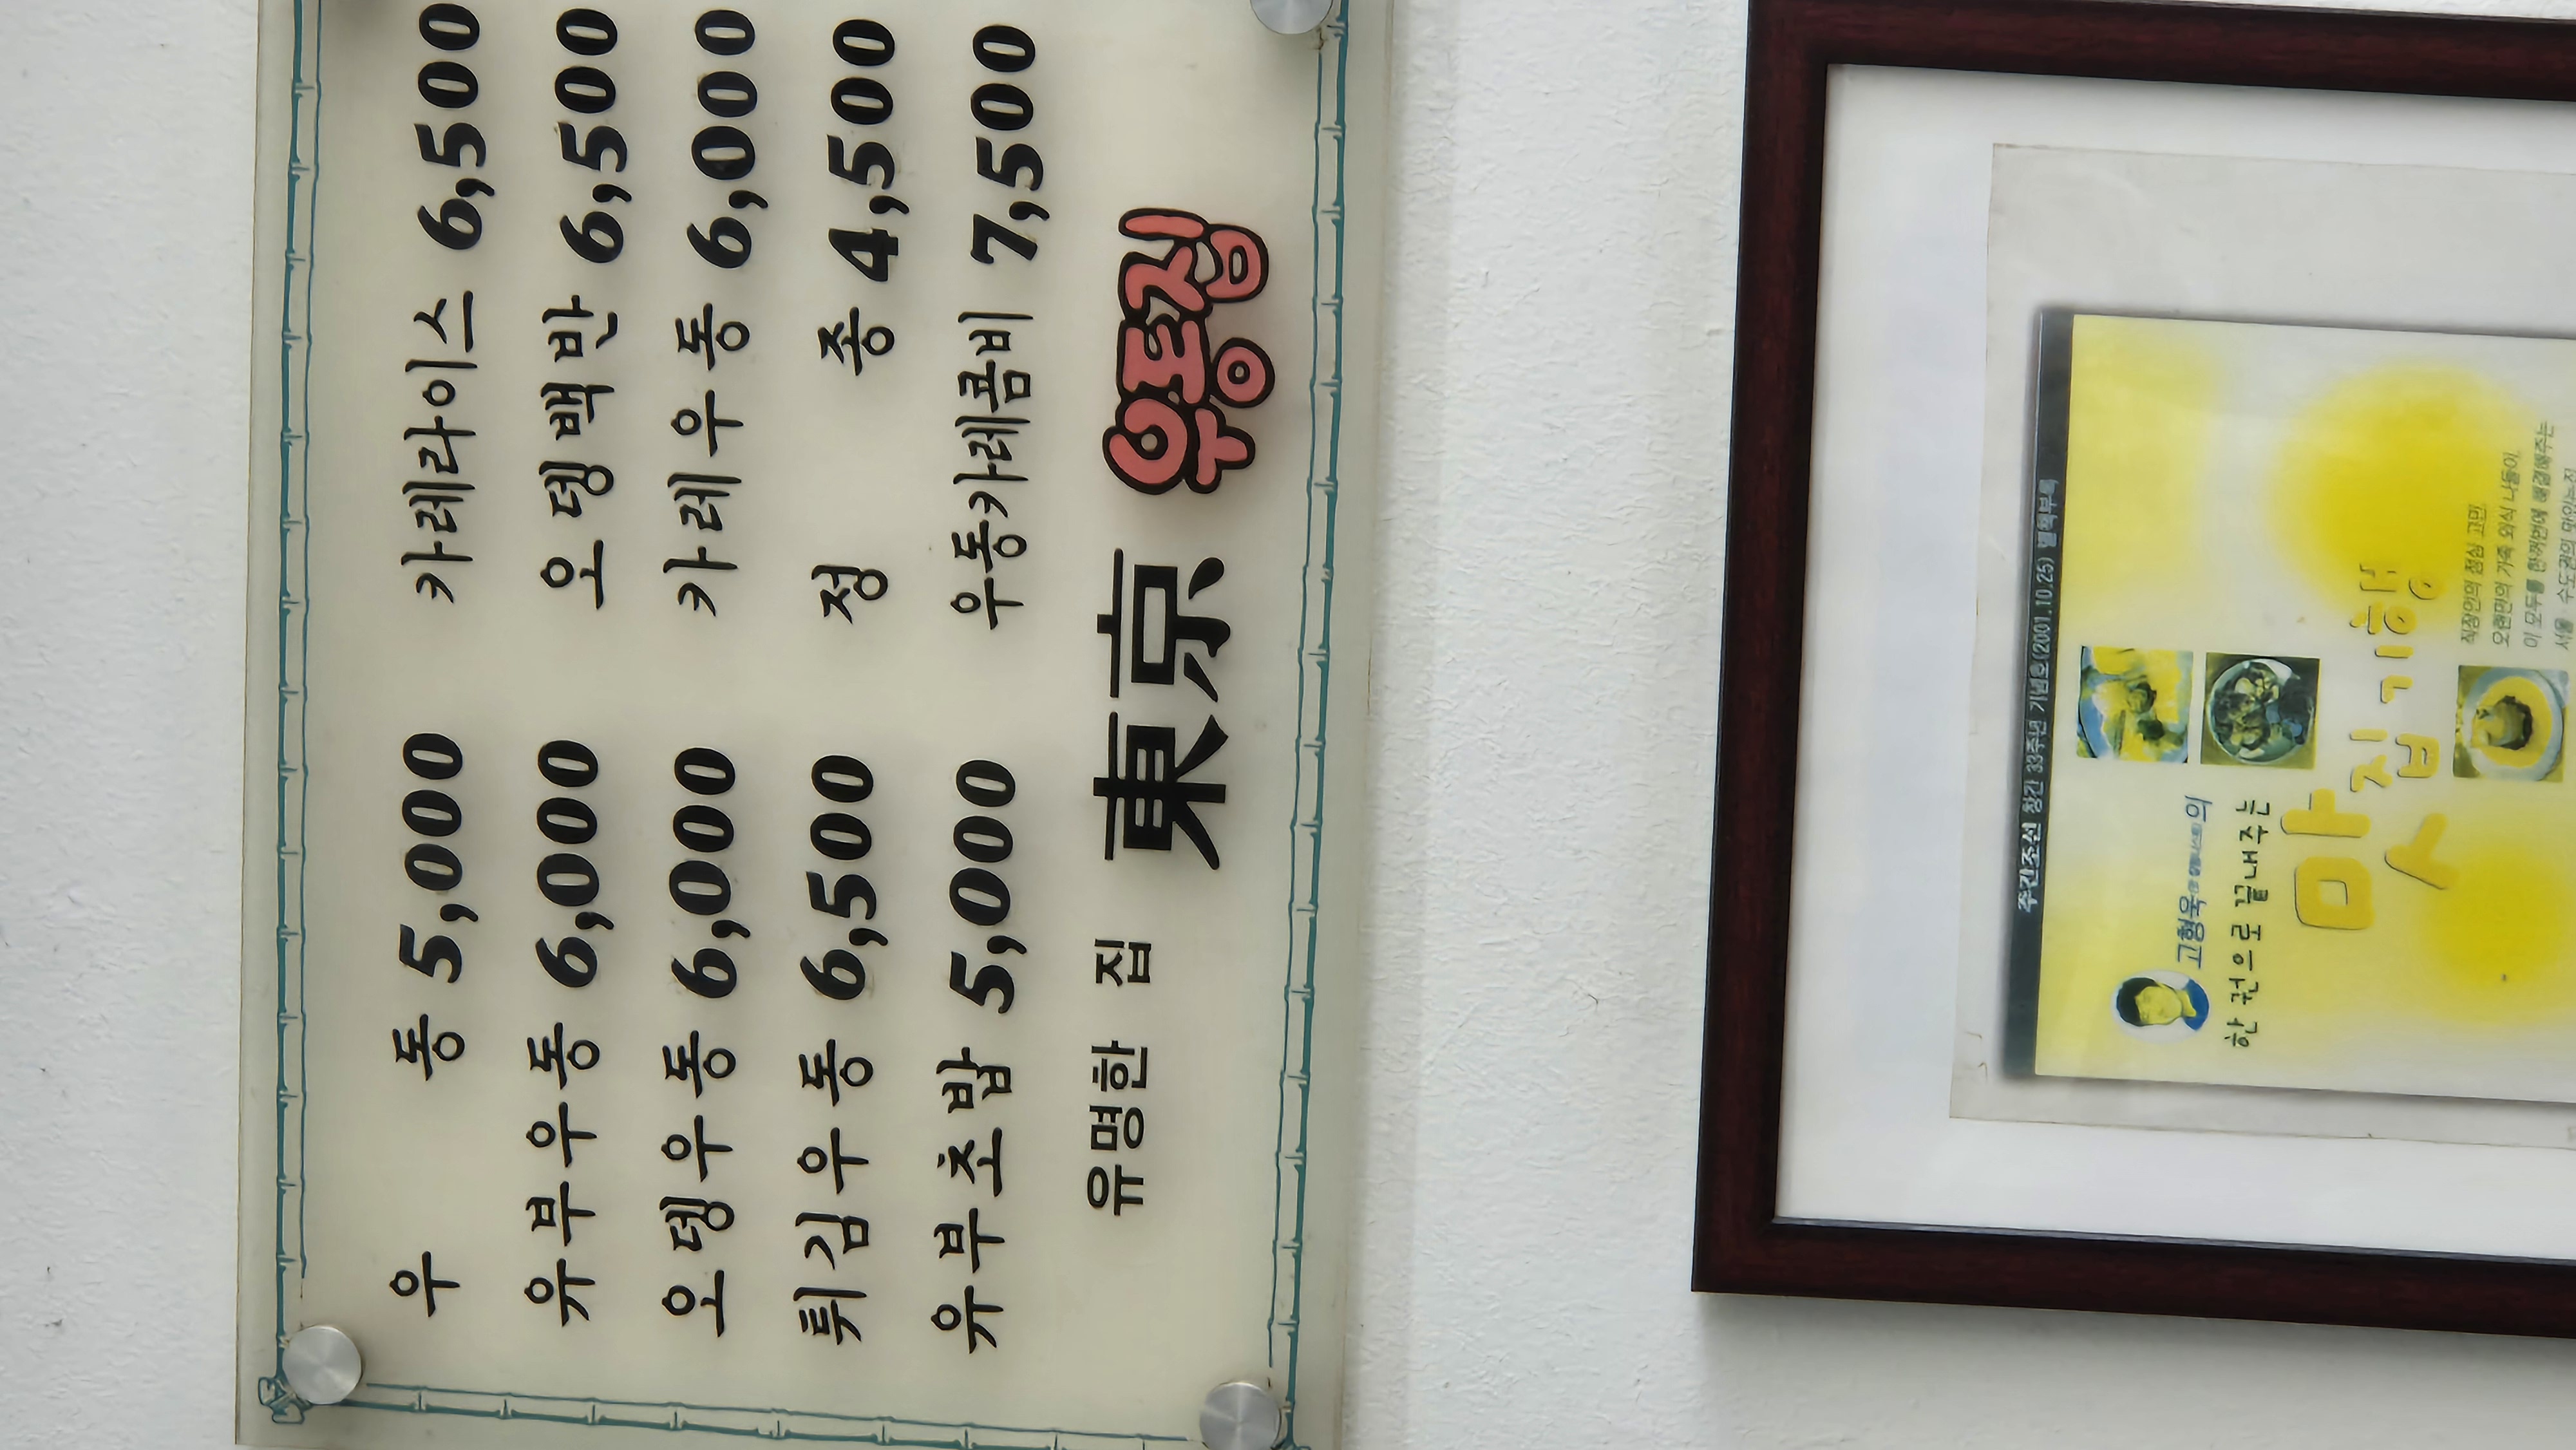 우 동 5,000 카레라이스 6,500
유부우동 6,000 오뎅백반 6,500
오뎅우동 6,000 카레우동 6,000
튀김우동 6,500 정 종 4,500
유부초밥 5,000 우동카레콤비 7,500
유명한 집 東京 우동집
주간조선 창간 33주년 기념호(2001.10.25) 별책부록
고형욱의
한 권으로 끝내주는
맛집기행
직장인의 점심 고민,
오랜만의 가족 외식 나들이,
이 모두를 한꺼번에 해결해주는
서울 수도권의 맛있는 집